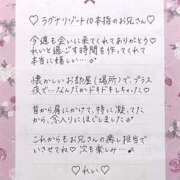 ♡ラグナリゾート10本指のお兄さん♡
今週も会いに来てくれてありがとう♡
れいと過ごす時間を作ってくれて
本当に嬉しい…
懐かしいお部屋(場所)で、プラス
夜で…なんだかドキドキしちゃった♡
耳から肩にかけて、特に凝ってた
から、念入りにほぐしましたが
これからもお兄さんの癒し担当で
いさせてね♡次も楽しみ…
♡れい♡